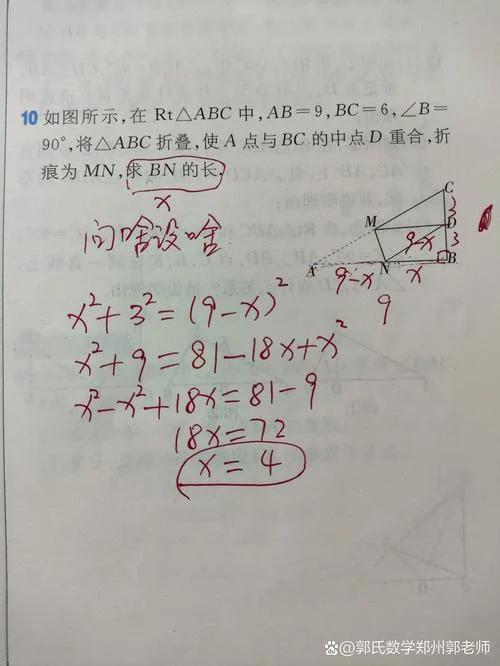 10 如图所示,在 Rt△ABC 中,AB=9,BC=6,∠B=
90°,将△ABC 折叠,使 A 点与 BC 的中点 D 重合,折
痕为 MN,求 BN 的长.
x
问啥设啥
C
3
M
D
9-x
3
A
N
B
9-x
x
9
x²+3²=(9-x)²
x²+9=81-18x+x²
x²-x²+18x=81-9
18x=72
x=4
@郭氏数学郑州郭老师